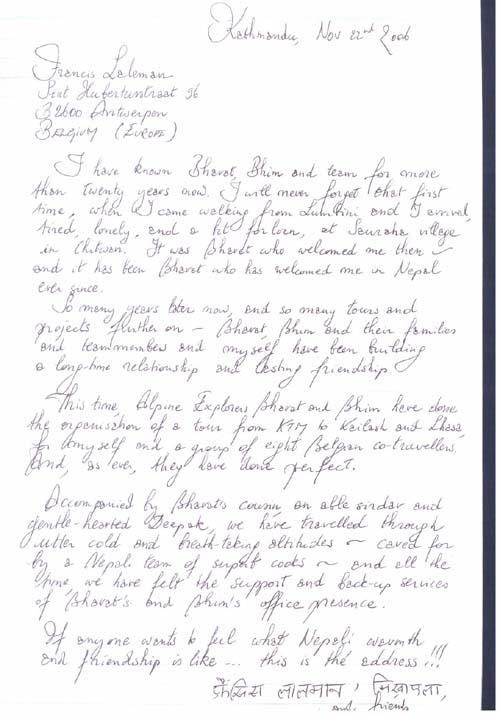 Kathmandu, Nov 22nd 2006
Francis Laleman
Sint Hubertusstraat 96
B2600 Antwerpen
BELGIUM (EUROPE)
I have known Bharat, Bhim and team for more
than twenty years now. I will never forget that first
time, when I came walking from Lumbini and I arrived,
tired, lonely, and a bit forlorn, at Sauraha village
in Chitwan. It was Bharat who welcomed me then –
and it has been Bharat who has welcomed me in Nepal
ever since.
So many years later now, and so many tours and
projects further on – Bharat, Bhim and their families
and teammembers and myself have been building
a long-time relationship and lasting friendship
This time, Alpine Explorers Bharat and Bhim have done
the organisation of a tour from KTM to Kailash and Lhasa,
for myself and a group of eight Belgian co-travellers.
And, as ever, they have done perfect.
Accompanied by Bharat's cousin, an able sirdar and
gentle-hearted Deepak, we have travelled through
utter cold and breath-taking altitudes – cared for
by a Nepali team of superb cooks – and all the
time, we have felt the support and back-up services
of Bharat's and Bhim's office presence.
If anyone wants to feel what Nepali warmth
and friendship is like ... this is the address!!!
फ्रैंसिस लालमान,
and friends